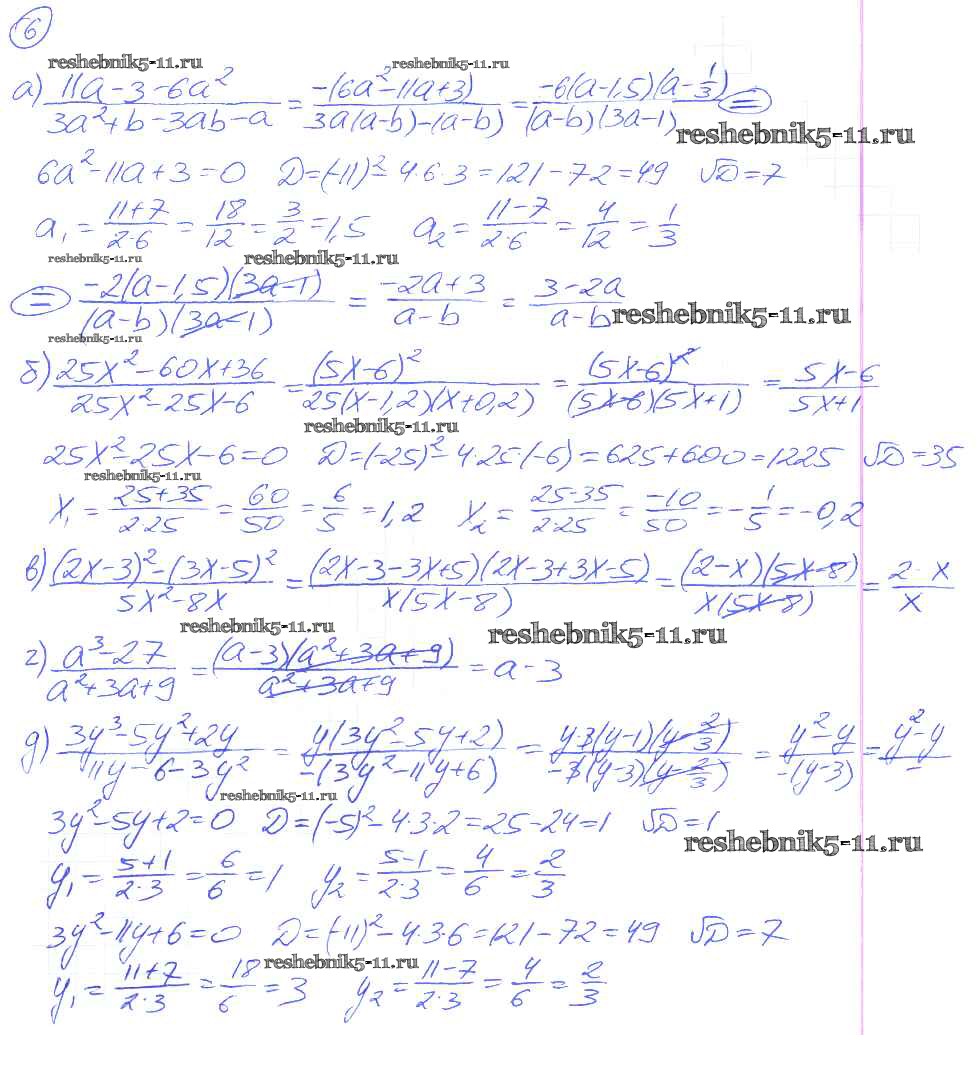 6
reshebnik5-11.ru reshebnik5-11.ru
а) (11a-3-6a²)/(3a²+b-3ab-a) = (-(6a²-11a+3))/(3a(a-b)-(a-b)) = (-6(a-1,5)(a-1/3))/((a-b)(3a-1)) =
reshebnik5-11.ru
6a²-11a+3=0 D=(-11)²-4·6·3=121-72=49 √D=7
a₁=(11+7)/(2·6)=18/12=3/2=1,5 a₂=(11-7)/(2·6)=4/12=1/3
reshebnik5-11.ru reshebnik5-11.ru
= (-2(a-1,5)(3a-1))/((a-b)(3a-1)) = (-2a+3)/(a-b) = (3-2a)/(a-b)
reshebnik5-11.ru
reshebnik5-11.ru
б) (25x²-60x+36)/(25x²-25x-6) = (5x-6)²/(25(x-1,2)(x+0,2)) = (5x-6)²/((5x-6)(5x+1)) = (5x-6)/(5x+1)
reshebnik5-11.ru
25x²-25x-6=0 D=(-25)²-4·25·(-6)=625+600=1225 √D=35
reshebnik5-11.ru
x₁=(25+35)/(2·25)=60/50=6/5=1,2 x₂=(25-35)/(2·25)=-10/50=-1/5=-0,2
в) ((2x-3)²-(3x-5)²)/(5x²-8x) = ((2x-3-3x+5)(2x-3+3x-5))/(x(5x-8)) = ((2-x)(5x-8))/(x(5x-8)) = (2-x)/x
reshebnik5-11.ru reshebnik5-11.ru
г) (a³-27)/(a²+3a+9) = ((a-3)(a²+3a+9))/(a²+3a+9) = a-3
д) (3y³-5y²+2y)/(11y-6-3y²) = (y(3y²-5y+2))/(-(3y²-11y+6)) = (y·3(y-1)(y-2/3))/(-3(y-3)(y-2/3)) = (y²-y)/(-(y-3)) = (y²-y)/-
reshebnik5-11.ru
3y²-5y+2=0 D=(-5)²-4·3·2=25-24=1 √D=1
reshebnik5-11.ru
y₁=(5+1)/(2·3)=6/6=1 y₂=(5-1)/(2·3)=4/6=2/3
3y²-11y+6=0 D=(-11)²-4·3·6=121-72=49 √D=7
reshebnik5-11.ru
y₁=(11+7)/(2·3)=18/6=3 y₂=(11-7)/(2·3)=4/6=2/3